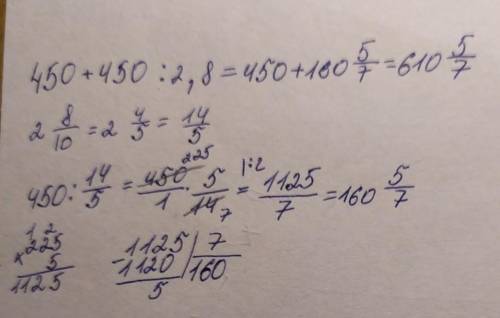 450 + 450 : 2,8 = 450 + 160 5/7 = 610 5/7
2 8/10 = 2 4/5 = 14/5
450 : 14/5 = 450/1 · 5/14 = 1125/7 = 160 5/7
225 1:2 7
1 2
× 225
5
1125
- 1125 | 7
1120 | 160
5